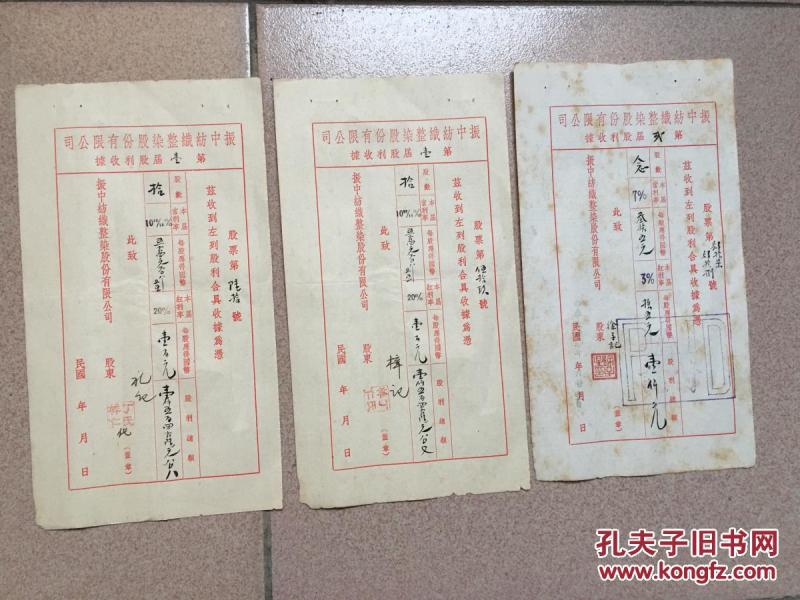 司公限有份股染整織紡中振
據收利股屆壹第
股票第陸拾號
茲收到左列股利合具收據為憑
股數
本屆官利率
每股應得國幣
本屆紅利率
每股應得國幣
股利總額
拾
20%
壹百元
此致
振中紡織整染股份有限公司
股東
禮記
(蓋章)
民國 年 月 日
司公限有份股染整織紡中振
據收利股屆壹第
股票第伍拾玖號
茲收到左列股利合具收據為憑
股數
本屆官利率
每股應得國幣
本屆紅利率
每股應得國幣
股利總額
拾
20%
壹百元
此致
振中紡織整染股份有限公司
股東
樟記
(蓋章)
民國 年 月 日
司公限有份股染整織紡中振
據收利股屆貳第
股票第 號
茲收到左列股利合具收據為憑
股數
本屆官利率
每股應得國幣
本屆紅利率
每股應得國幣
股利總額
念
7%
叁拾五元
3%
拾五元
壹仟元
此致
振中紡織整染股份有限公司
股東
(蓋章)
民國 年 月 日
孔夫子旧书网